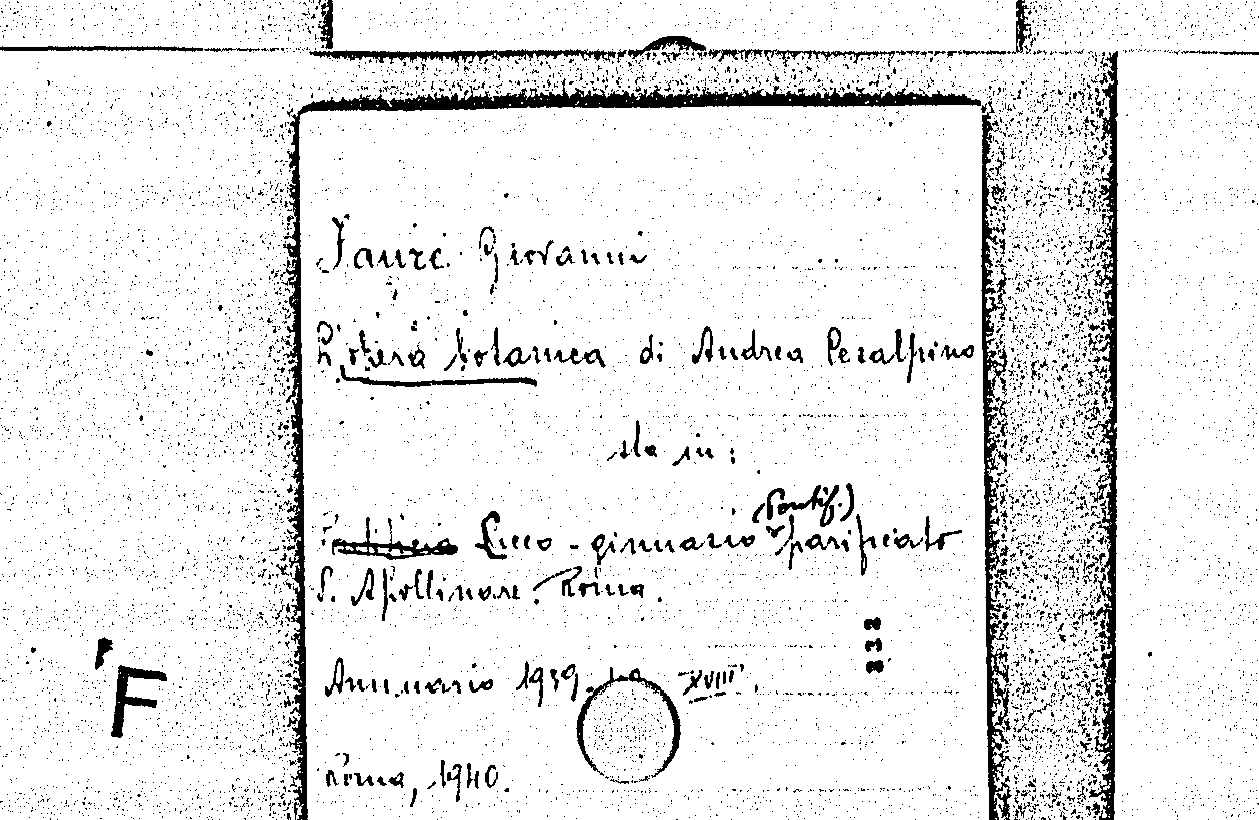 Fauré Giovanni
L'opera botanica di Andrea Cesalpino
sta in:
(Pontif.)
Pontificio Liceo-ginnasio parificato
S. Apollinare. Roma.
Annuario 1939-40 XVIII.
Roma, 1940.
232
'F